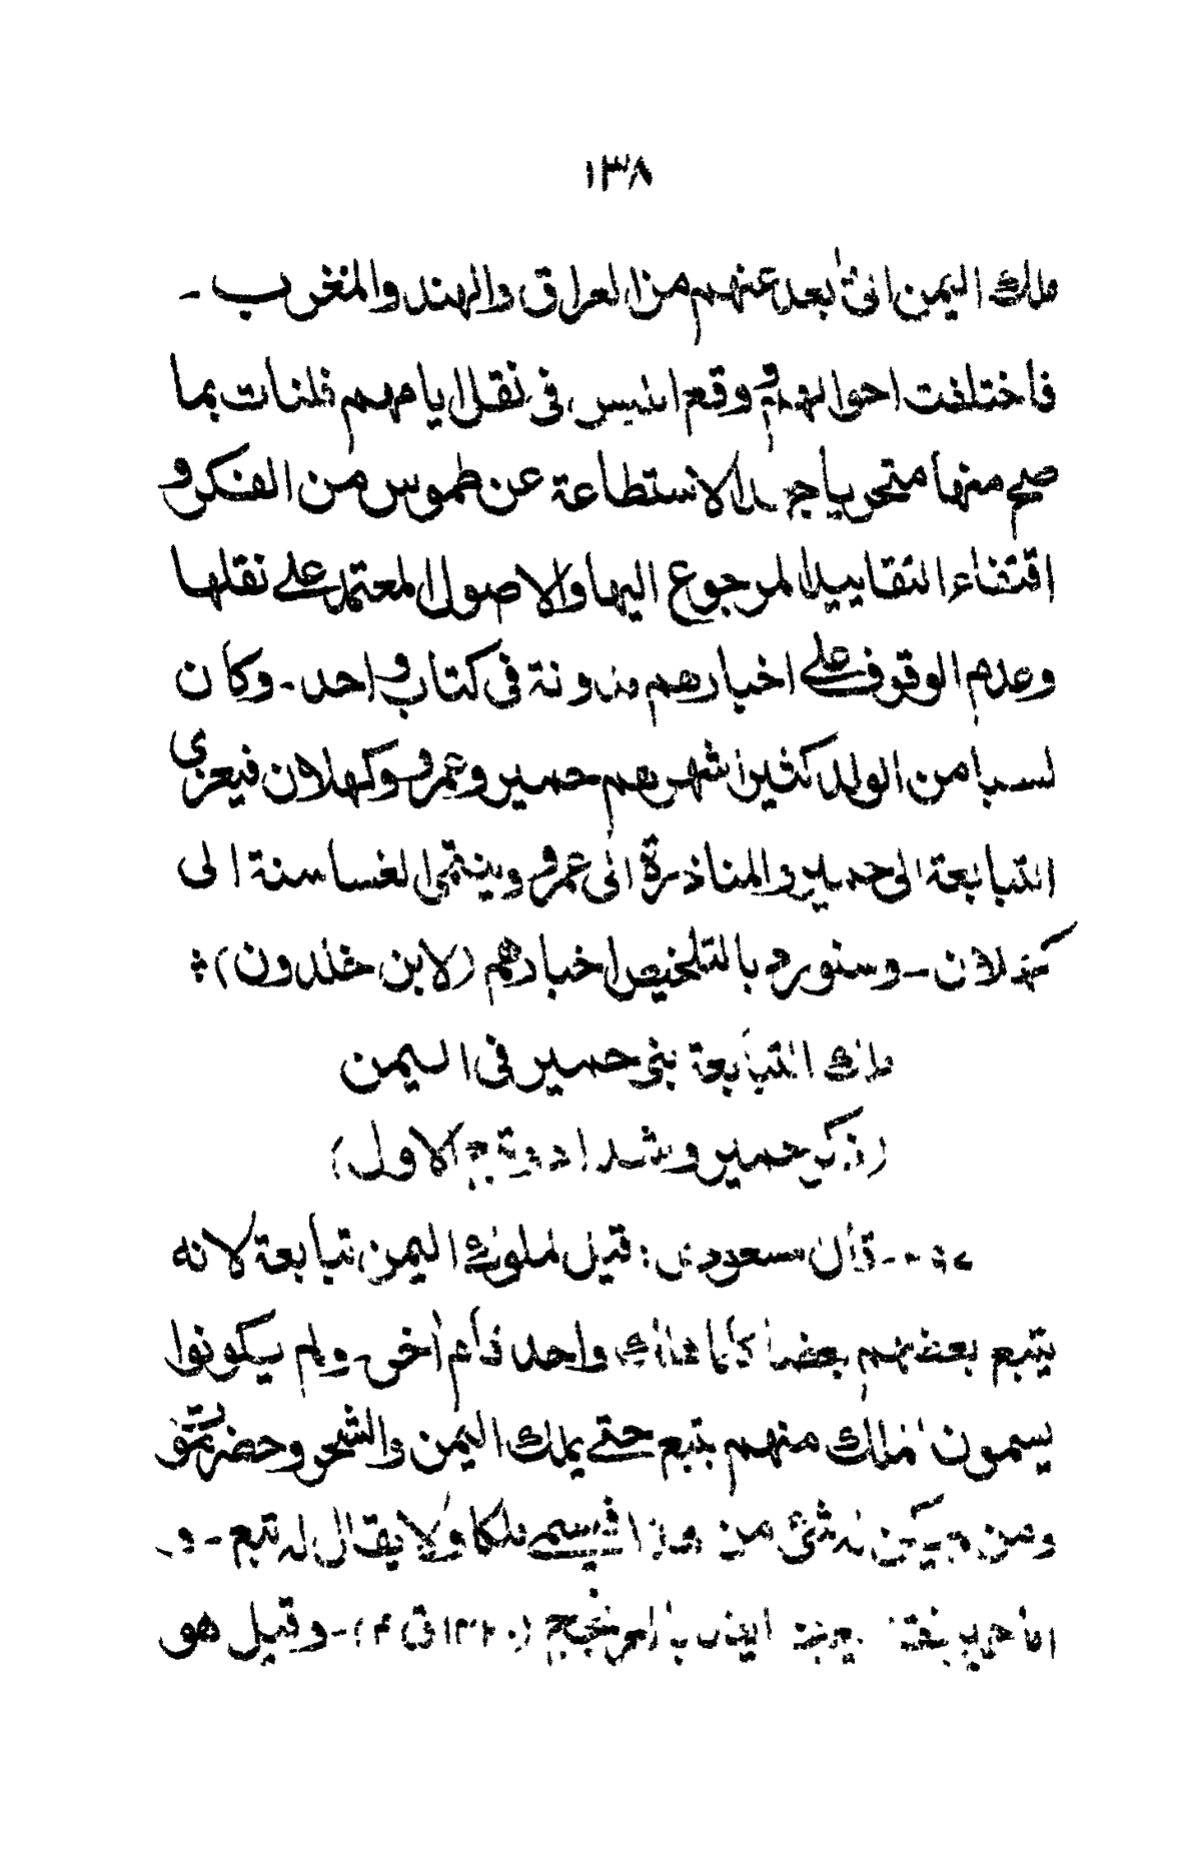 ١٣٨
ملك اليمن الى ابعد عنهم من العراق والهند والمغرب ـ
فاختلفت احوالهم و وقع اللبس فى نقل ايامهم فلنات بما
صح منها متحريا جهد الاستطاعة عن طموس من الفكر و
اقتفاء التقاييد المرجوع اليها والاصول المعتمد على نقلها
وعدم الوقوف على اخبارهم مدونة فى كتاب واحد ـ وكان
لسبا من الولد كثير اشهرهم حمير وعمرو وكهلان فيعزى
التبابعة الى حمير والمناذرة الى عمرو وينتمى الغساسنة الى
كهلان ـ وسنورد بالتلخيص اخبارهم (لابن خلدون) ؞
ملك التبابعة بنى حمير فى اليمن
(ذكر حمير وشداد وتبع الاول)
قال مسعودى : قيل لملوك اليمن تبابعة لانه
يتبع بعضهم بعضا كلما هلك واحد قام اخر ـ ولم يكونوا
يسمون الملك منهم بتبع حتى يملك اليمن والشحر وحضرموت
ومن لم يكن له شئ من هذا فيسمى ملكا ولا يقال له تبع ـ و
اما حمير العرنجج ـ وقيل هو